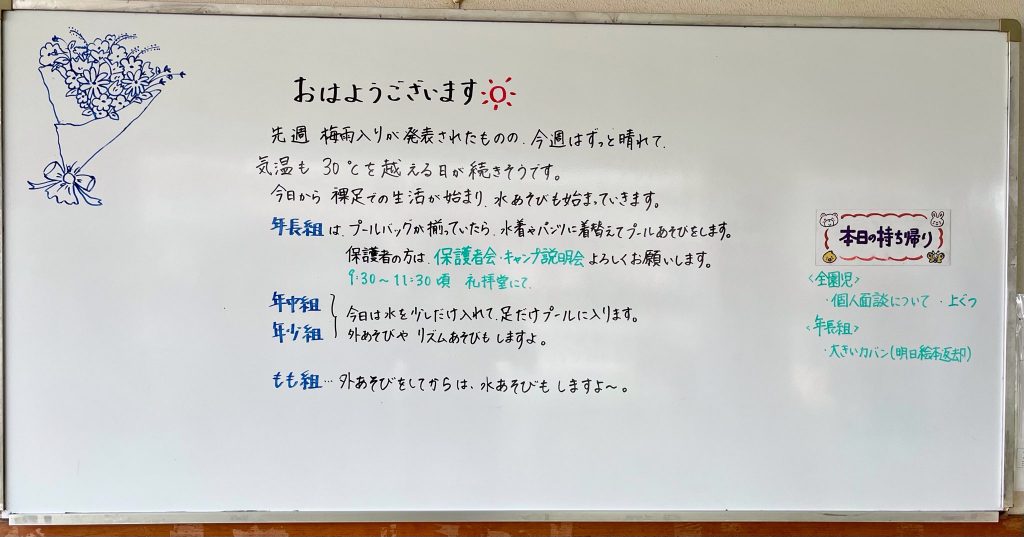 おはようございます
先週 梅雨入りが発表されたものの、今週はずっと晴れて、
気温も 30℃を越える日が続きそうです。
今日から 裸足での生活が始まり、水あそびも始まっていきます。
年長組は、プールバッグが揃っていたら、水着やパンツに着替えてプールあそびをします。
保護者の方は、保護者会・キャンプ説明会 よろしくお願いします。
9:30〜11:30頃 礼拝堂にて、
年中組
年少組
今日は水を少しだけ入れて、足だけプールに入ります。
外あそびや リズムあそびもしますよ。
もも組…外あそびをしてからは、水あそびも しますよ〜。
本日の持ち帰り
<全園児>
・個人面談について ・上ぐつ
<年長組>
・大きいカバン(明日絵本返却)